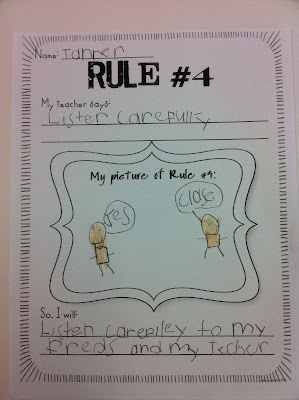 Name: Tanner
RULE #4
My teacher says:
Listen Carefully
My picture of Rule #4:
yes
close
So, I will:
Listen carepiley to my
freds and my techor